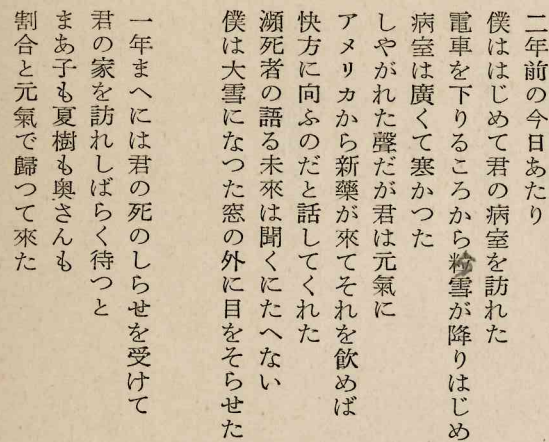 二年前の今日あたり
僕ははじめて君の病室を訪れた
電車を下りるころから粉雪が降りはじめ
病室は廣くて寒かつた
しやがれた聲だが君は元氣に
アメリカから新藥が來てそれを飮めば
快方に向ふのだと話してくれた
瀕死者の語る未來は聞くにたへない
僕は大雪になつた窓の外に目をそらせた
一年まへには君の死のしらせを受けて
君の家を訪れしばらく待つと
まあ子も夏樹も奧さんも
割合と元氣で歸つて來た